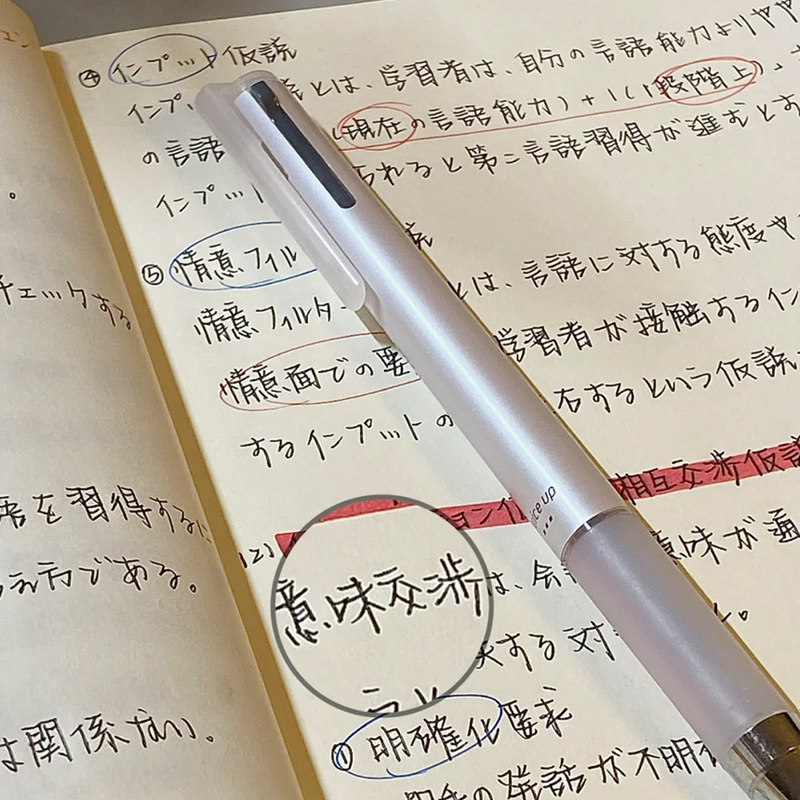 チェックする
語を習得するに
考え方である。
は関係ない。
④ インプット仮説
インプ 説とは、学習者は、自分の言語能力よりやや
の言語 (現在の言語能力)+1(1段階上)
られると第二言語習得が進むとす
インプット
⑤ 情意フィル 説
情意フィルター とは、言語に対する態度や
情意面での要 学習者が接触するイン
するインプットの 右するという仮説
ョン仮 相互交渉仮説
(2)
意味交渉は、会 意味が通
決する対 。
① 明確化要求
の発話が不明確
ice up